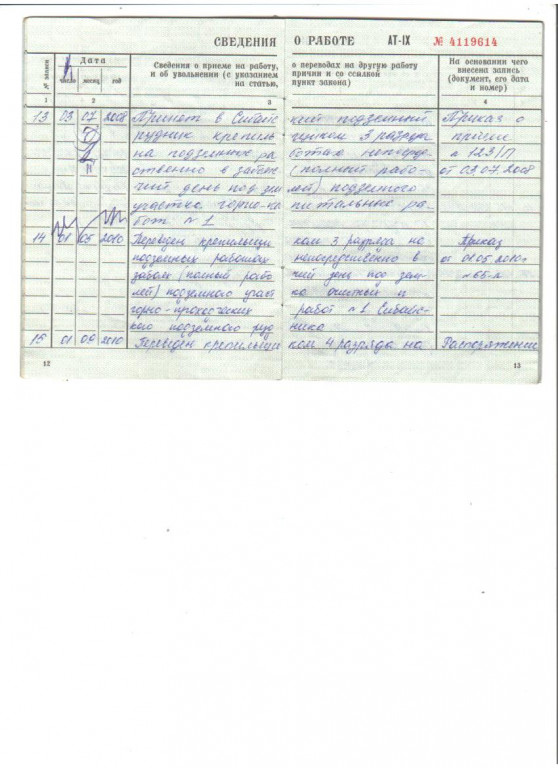 СВЕДЕНИЯ О РАБОТЕ АТ-IX № 4119614
№ записи
Дата
число месяц год
Сведения о приеме на работу, о переводах на другую работу
и об увольнении (с указанием причин и со ссылкой
на статью, пункт закона)
На основании чего
внесена запись
(документ, его дата
и номер)
1 2 3 4
13 03 07 2008 Принят в Сибайский подземный Приказ о
рудник крепильщиком 3 разряда приеме
на подземные работах непосред- № 123/П
ственно в забоях (полный рабо- от 03.07.2008
чий день под землей) подземного
участка горно-капитальных ра-
бот №1
14 01 05 2010 Переведен крепильщиком 3 разряда на Приказ
подземных работах непосредственно в от 01.05.2010г
забоях (полный рабочий день под зем-
лей) подземного участка очистных и
горно-проходческих работ №1 Сибайс-
кого подземного рудника
15 01 09 2010 Переведен крепильщиком 4 разряда на Распоряжение
12 13